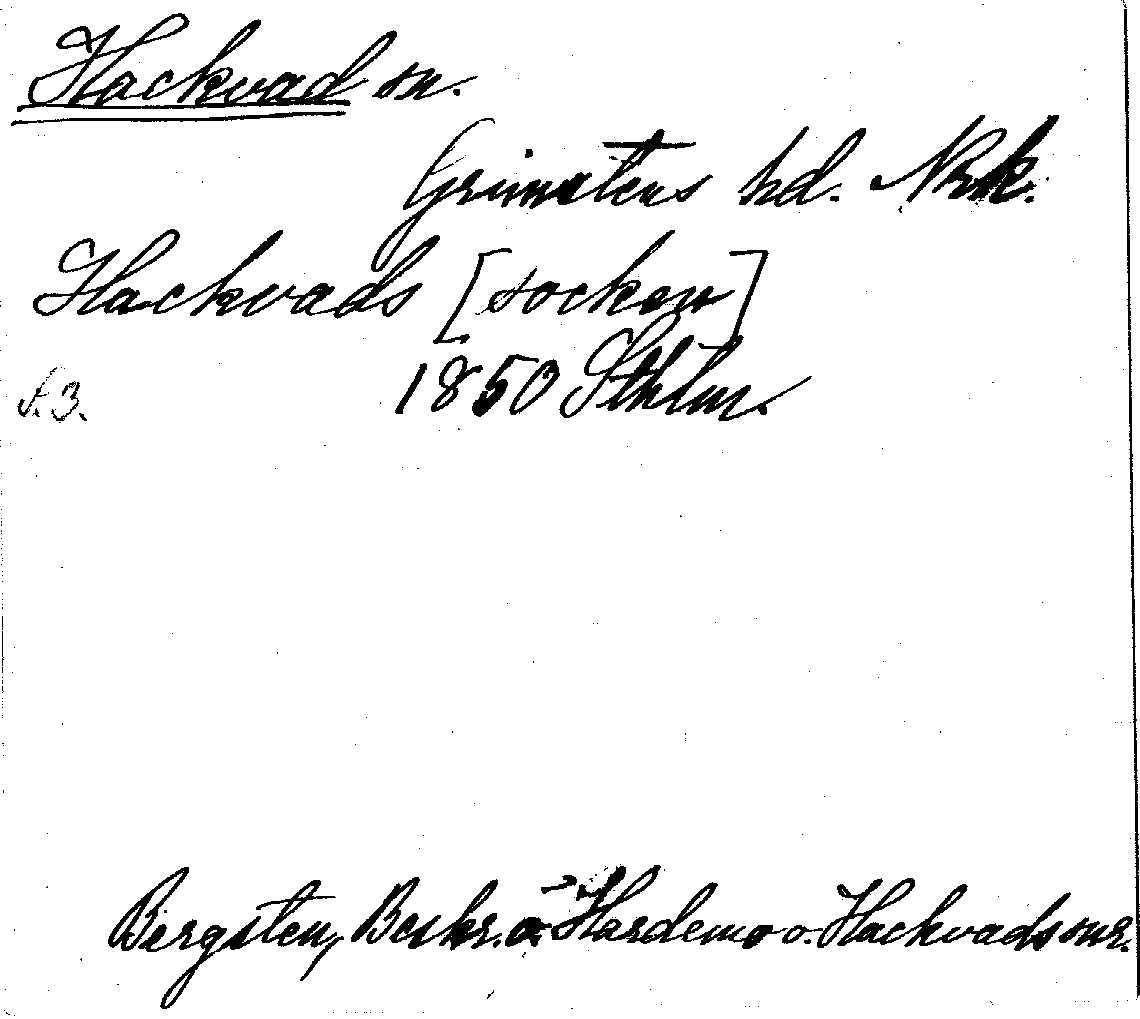 Hackvad sn.
Grimstens hd. Nrk.
Hackvads [socken]
s. 3. 1850 Sthlm.
Bergsten, Beskr. ö. Hardemo o. Hackvads snr.